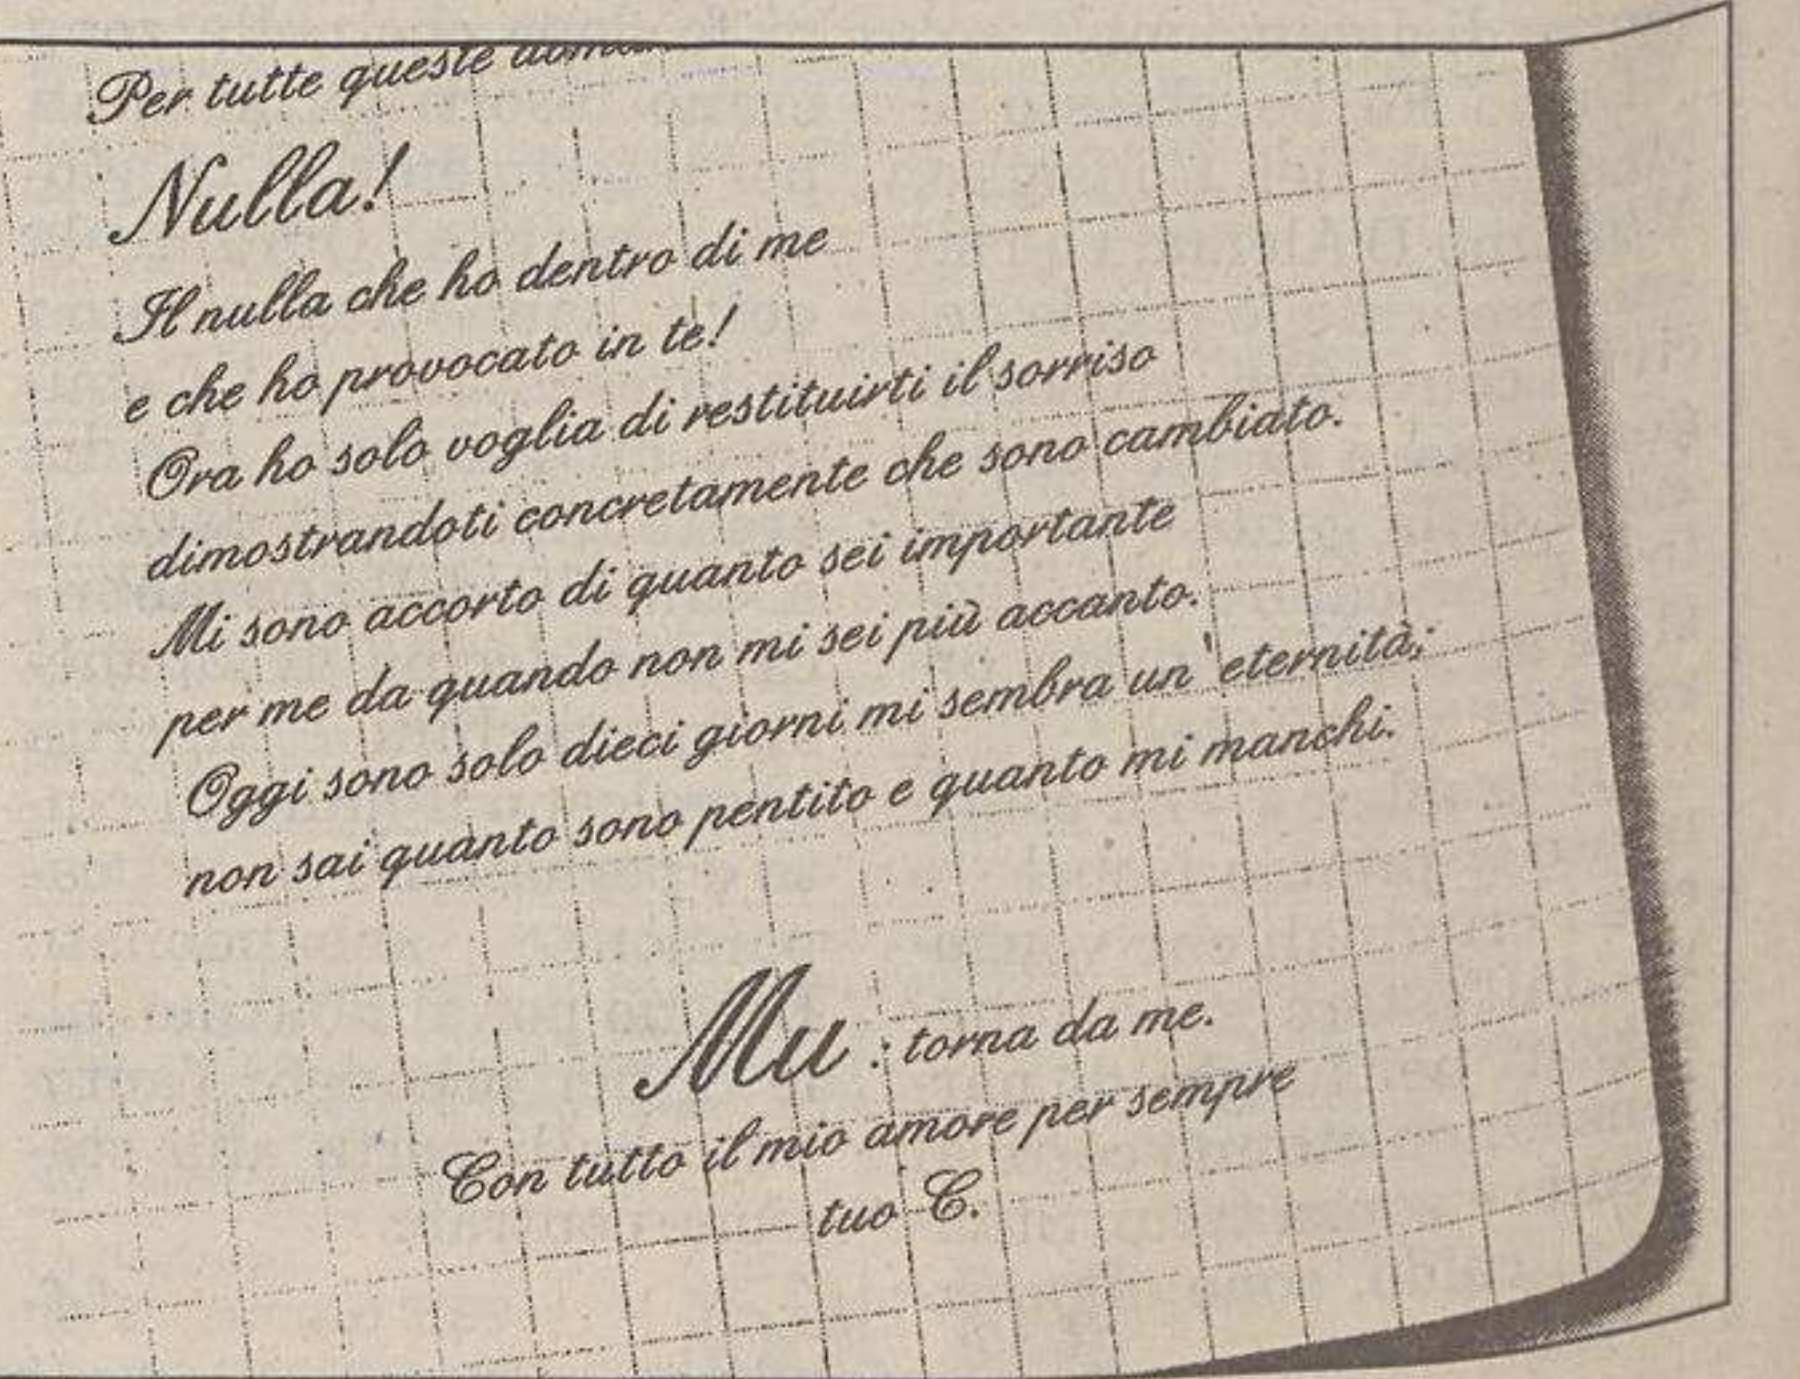 Per tutte queste
Nulla!
Il nulla che ho dentro di me
e che ho provocato in te!
Ora ho solo voglia di restituirti il sorriso
dimostrandoti concretamente che sono cambiato.
Mi sono accorto di quanto sei importante
per me da quando non mi sei più accanto.
Oggi sono solo dieci giorni mi sembra un'eternità;
non sai quanto sono pentito e quanto mi manchi.
Mu : torna da me.
Con tutto il mio amore per sempre
tuo C.